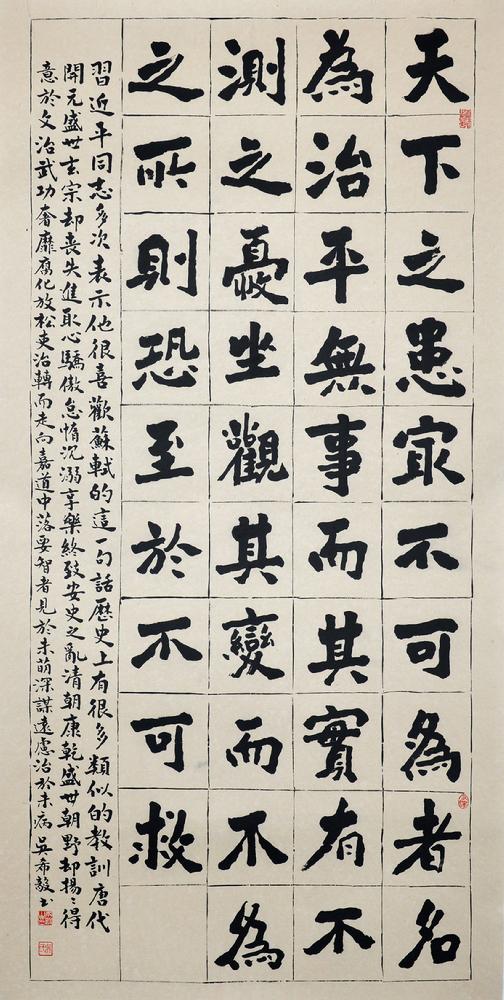 天下之患冣不可為者名
為治平無事而其實有不
測之憂坐觀其變而不為
之所則恐至於不可救
習近平同志多次表示他很喜歡蘇軾的這一句話歷史上有很多類似的教訓唐代
開元盛世玄宗却喪失進取心驕傲怠惰沉溺享樂終致安史之亂清朝康乾盛世朝野却揚〻得
意於文治武功奢靡腐化放松吏治轉而走向嘉道中落要智者見於未萌深謀遠慮治於未病吳希毅書